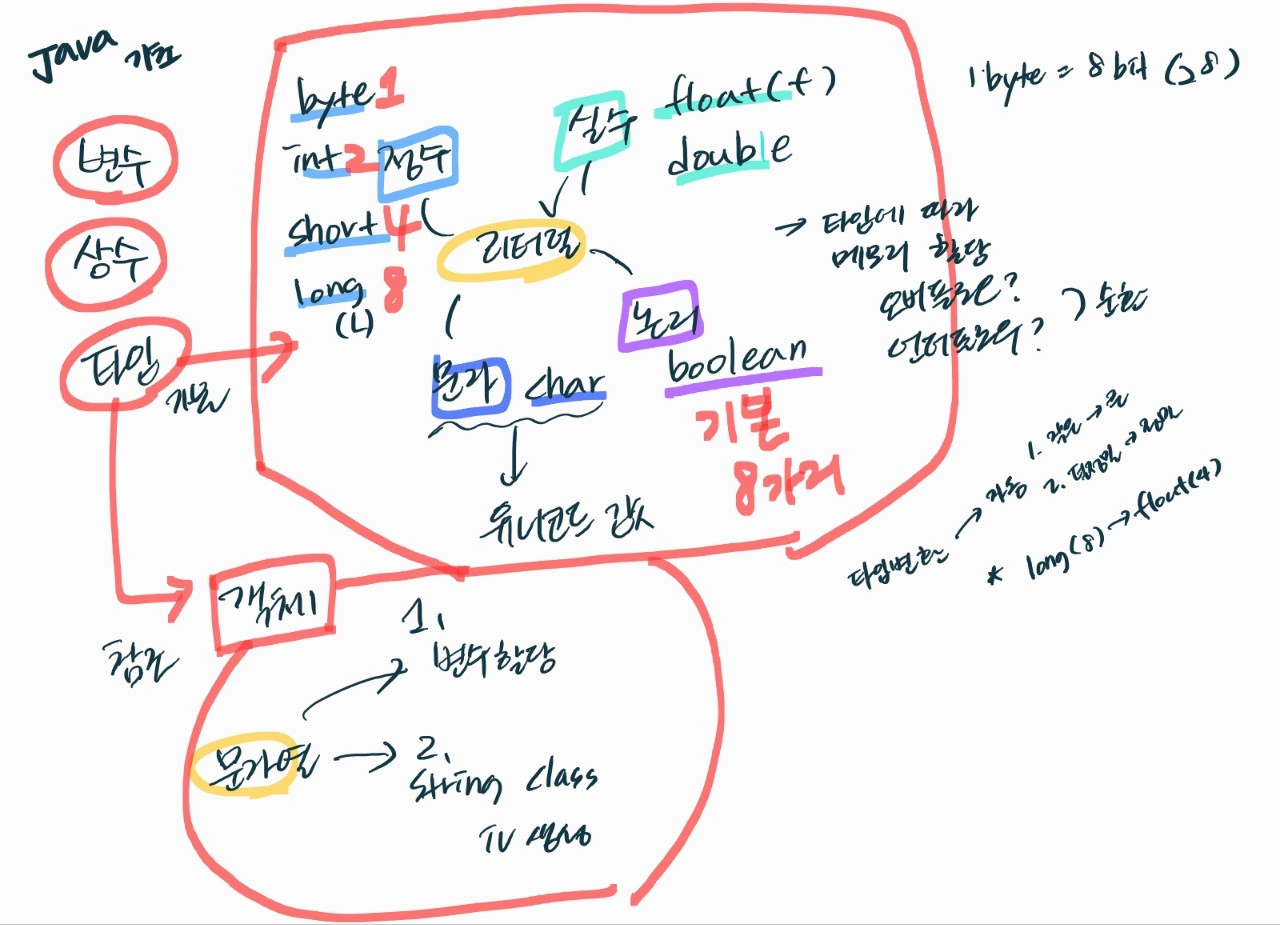 Java 기초
변수
상수
타입
기본
참조
byte 1
int 2 정수
short 4
long 8
(L)
실수 float(f)
double
리터럴
논리
boolean
문자 char
유니코드 값
기본
8가지
1byte = 8bit
→ 타입에 따라
메모리 할당
오버플로우?
언더플로우? ) 순환
타입변환 → 자동 1. 작은 → 큰
2. 덜정밀 → 정밀
* long(8) → float(4)
객체
1.
변수할당
문자열 → 2.
String class
생성